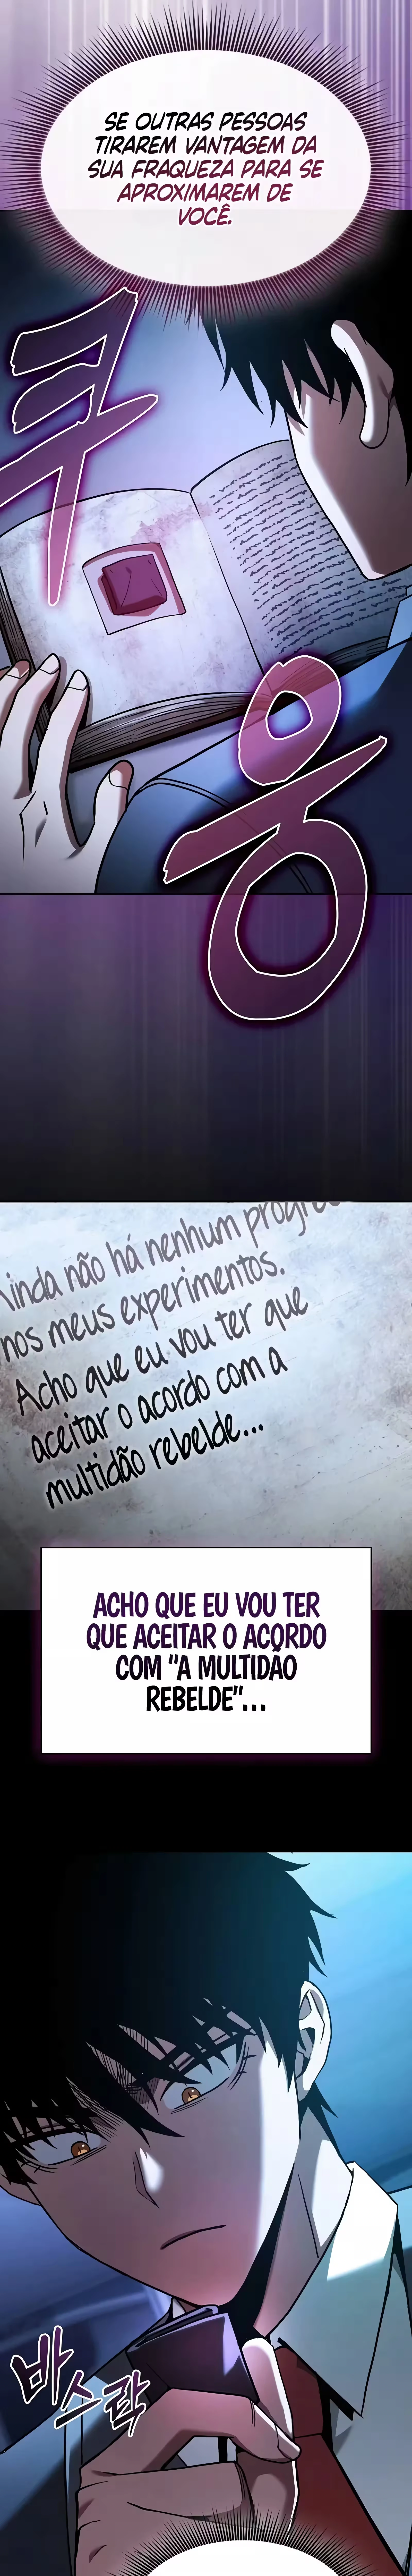 SE OUTRAS PESSOAS
TIRAREM VANTAGEM DA
SUA FRAQUEZA PARA SE
APROXIMAREM DE
VOCÊ.
쿠
웅
Ainda não há nenhum
nos meus experimentos.
Acho que eu vou ter que
aceitar o acordo com a
multidão rebelde...
ACHO QUE EU VOU TER
QUE ACEITAR O ACORDO
COM "A MULTIDÃO
REBELDE"...
바
스
락